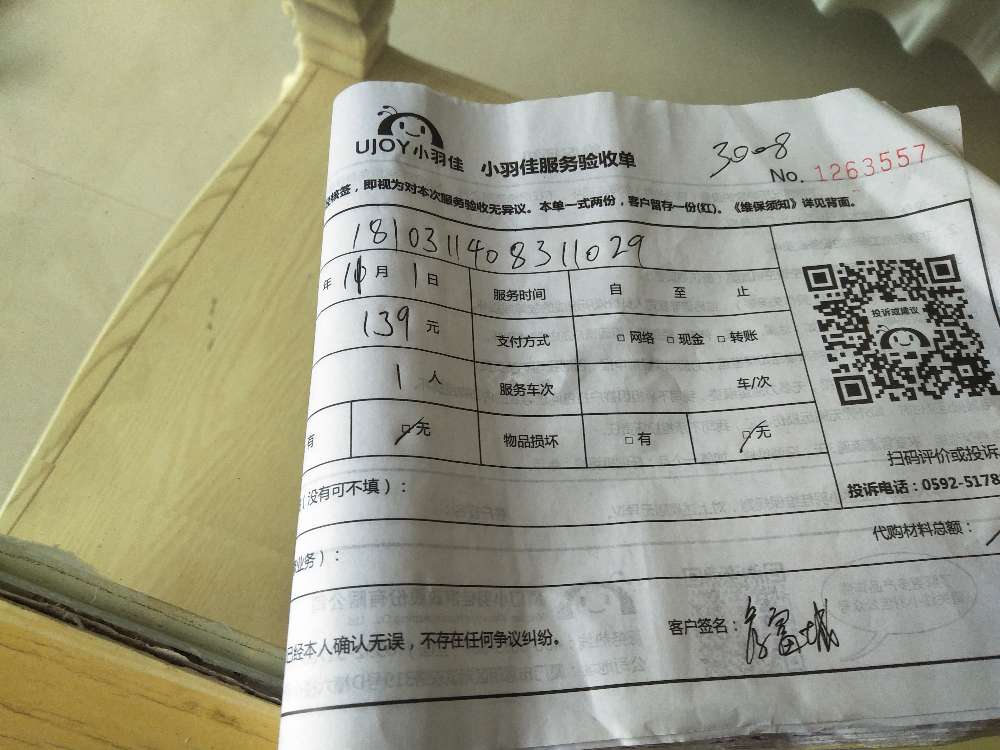 UJOY小羽佳 小羽佳服务验收单
3008
No. 1263557
核签，即视为对本次服务验收无异议。本单一式两份，客户留存一份(红)。《维保须知》详见背面。
1810311408311029
年 11 月 1 日 服务时间 自 至 止
139 元 支付方式 □ 网络 □ 现金 □ 转账
投诉或建议
1 人 服务车次 车/次
有 □ 无 物品损坏 □ 有 □ 无
扫码评价或投诉
(没有可不填)：
投诉电话：0592-5178
代购材料总额：
业务)：
已经本人确认无误，不存在任何争议纠纷。
客户签名：